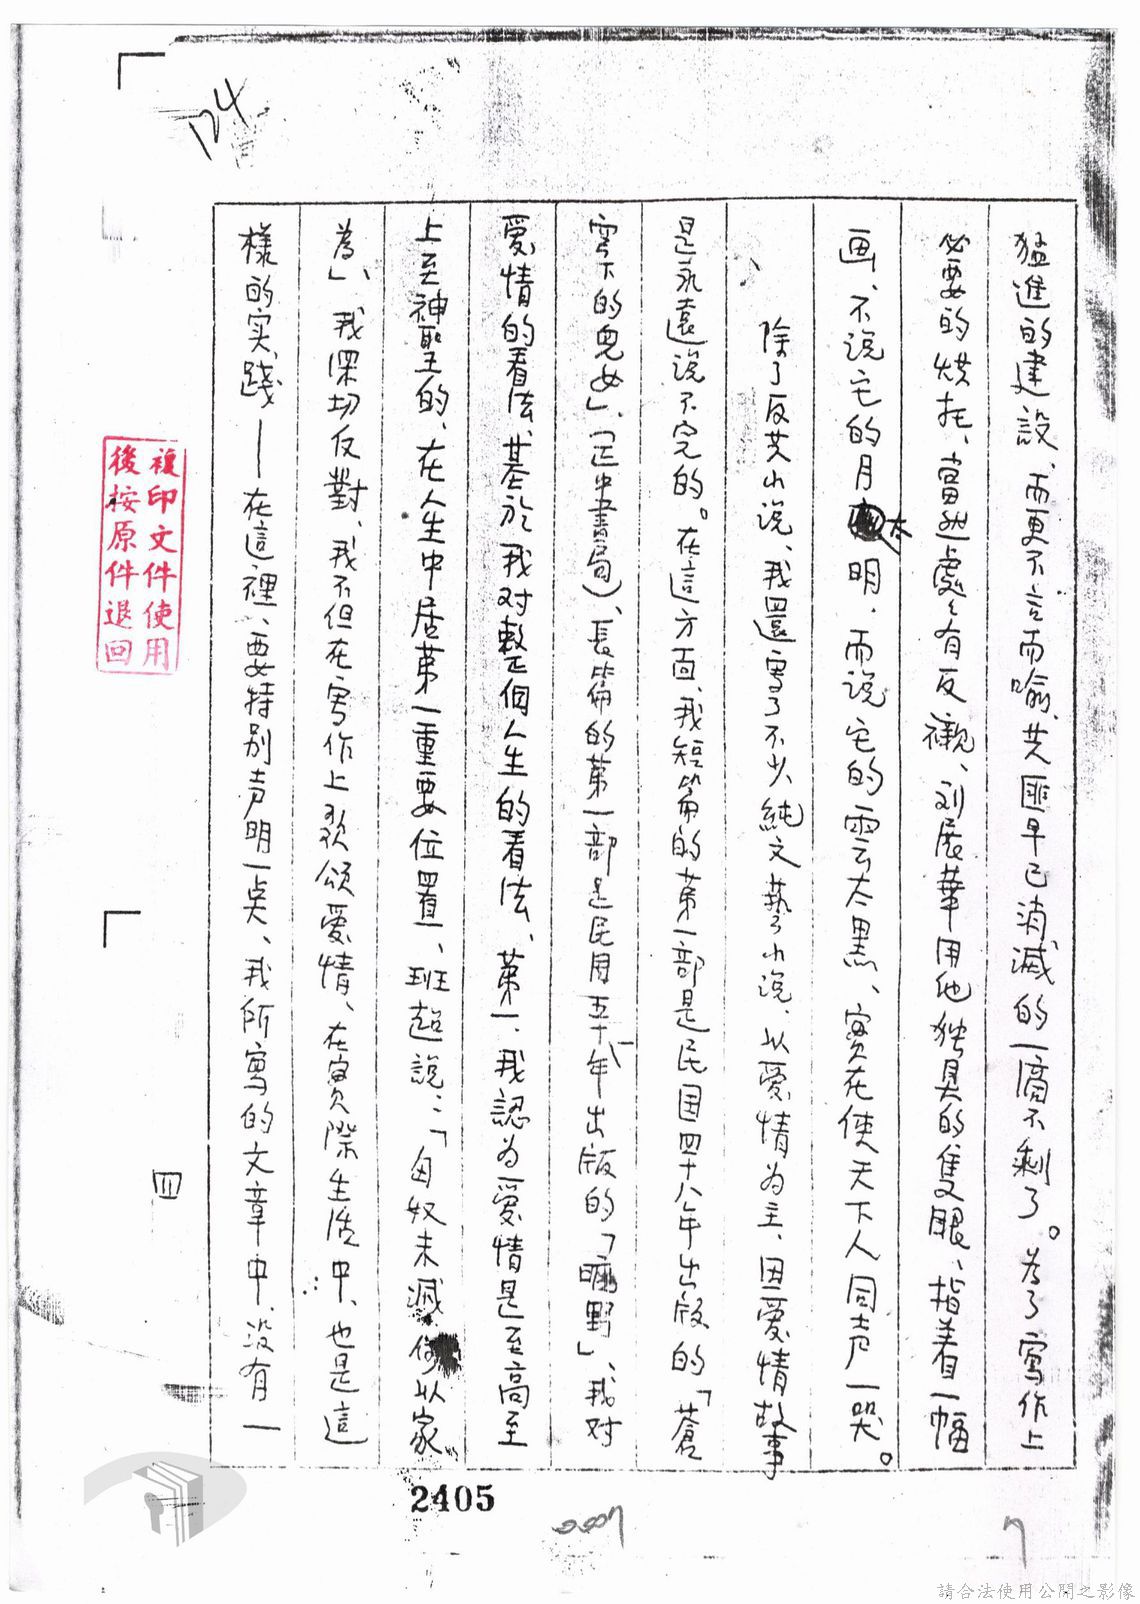 猛進的建設、而更不言而喻、共匪早已消滅的一滴不剩了。为了寫作上
必要的烘托、當然處處有反襯、刘展華用他独具的隻眼、指着一幅
画、不説它的月太明、而説它的雲太黑、實在使天下人同声一哭。
除了反共小说、我還寫了不少純文藝小说、以爱情为主、因爱情故事
是永遠说不完的。在這方面、我短篇的第一部是民国四十八年出版的「蒼
穹下的兒女」、(正中書局)、長篇的第一部是民国五十一年出版的「曠野」、我对
爱情的看法、基於我对整個人生的看法、第一、我認为爱情是至高至
上至神聖的、在人生中居第一重要位置、班超説:「匈奴未滅、何以家
為」、我深切反對、我不但在寫作上歌頌爱情、在實際生活中、也是這
樣的实践——在這裡、要特别声明一点、我所寫的文章中、没有一
四
124
複印文件使用
後按原件退回
2405
7
請合法使用公開之影像